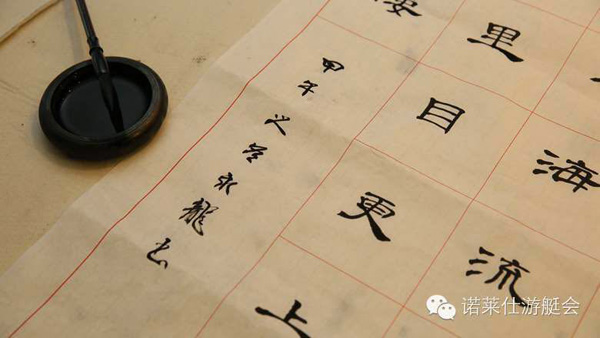 海流
里目更上
甲午永龍书
诺莱仕游艇会